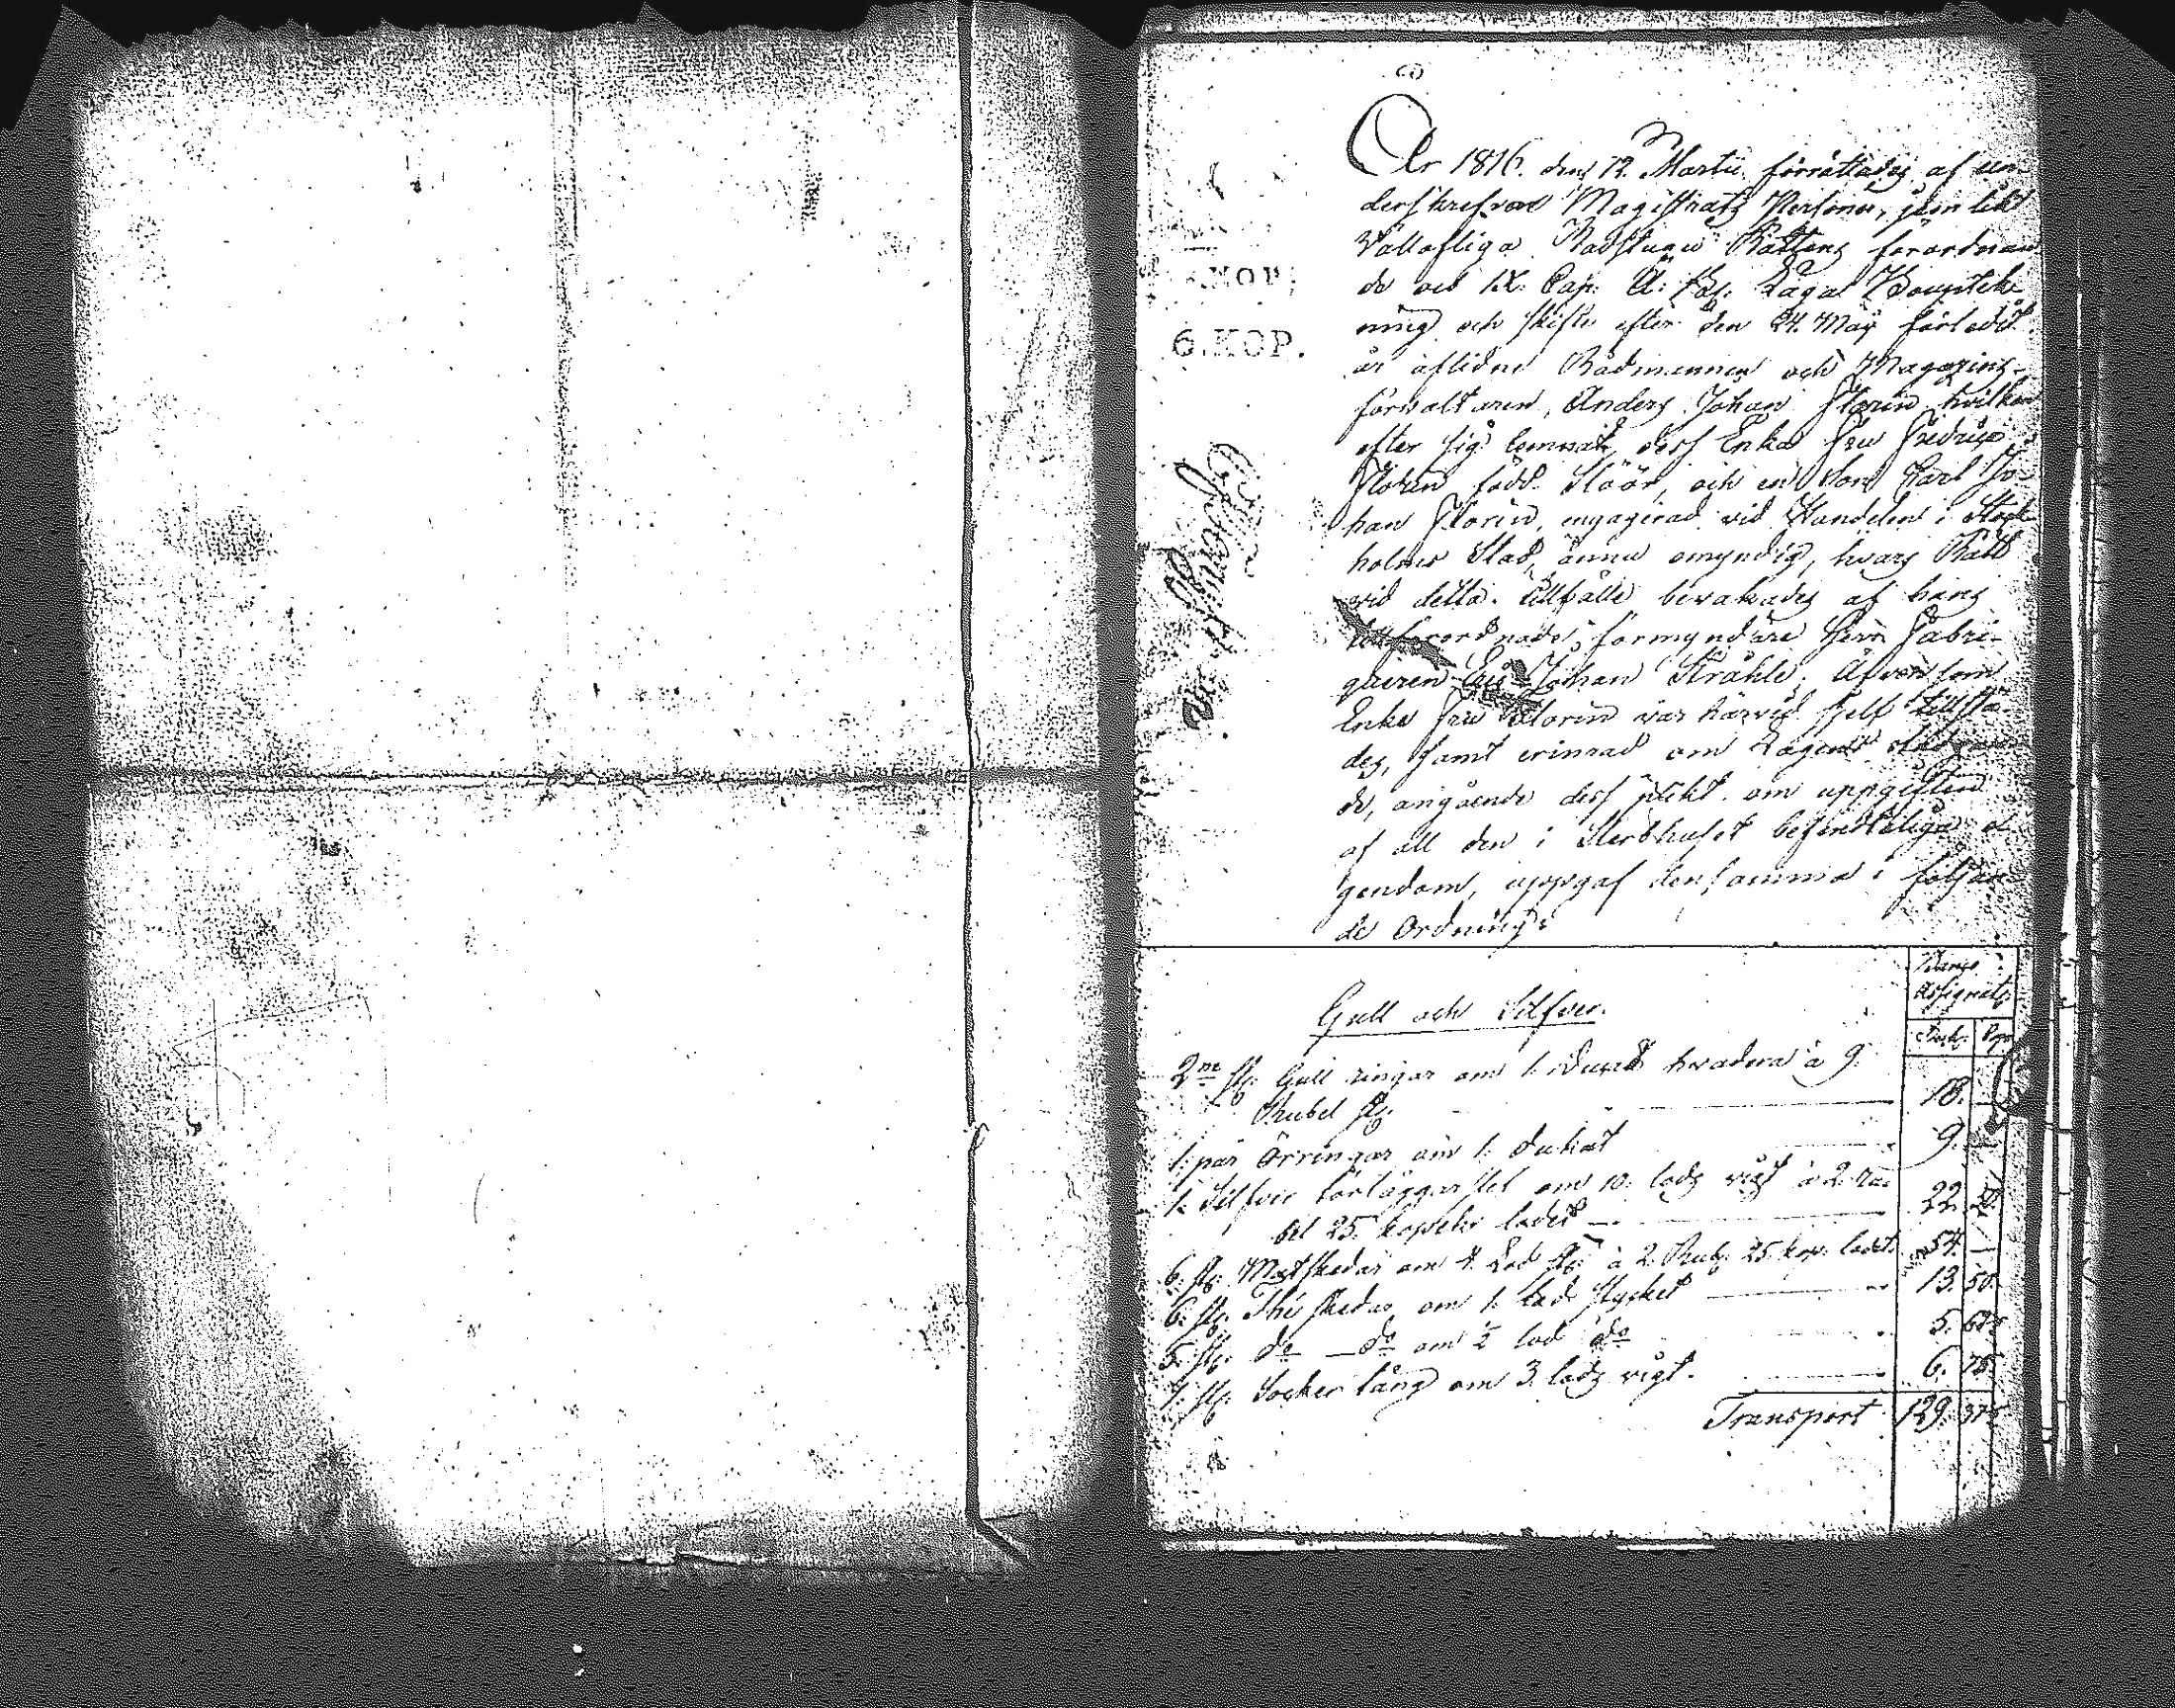 År 1816. den 12. Martii, förrättades af un-
derskrefvne Magistrats Personer, jemlikt
Vällofliga Rådstugu Rättens förordnan
de och IX. Cap. Ä: B: Laga Boupteck
ning och skifte efter den 24. Maij förledit
år aflidne Rådmannen och Magazins-
förvaltaren, Anders Johan Florin hvilken
efter sig lemnat dess Enka Fru Fredrica
Florin född Höör, och en Son Carl Jo-
han Florin, engagerad vid Handelen i Stock
holms Stad, ännu omyndig, hvars Rätt
vid detta tillfälle bevakades af hans
förordnade förmyndare Herr Fabri-
queuren Johan Stråhle, Äfven som
Enke Fru Florin var härvid sjelf tillstä-
des, samt erinrad om Lagens
de, angående dess plikt om uppgiften
af all den i Sterbhuset befindteliga e-
gendom, uppgaf densamma i följan-
de Ordning:
KOP.
6. KOP.
Banco
Assignats
Gull och Silfver.
Rub. Kop.
2ne st. Gull ringar om 1. Ducat hvardera à 9.
Rubel st. 18.
1. par Örringar om 1. Dukat 9.
1. Silfver förläggar slef om 10. lods vigt à 2. Ru-
bel 25. kopek lodet 22. 50.
6. st. Matskedar om 4. Lod st. à 2. Rub. 25. kop. lodet. 54.
6. st. The skedar om 1. Lod stycket 13. 50.
5. st. do do om ½ lod do 5. 62½
1. st. Socker tång om 3. lods vigt. 6. 75.
Transport 129. 37½